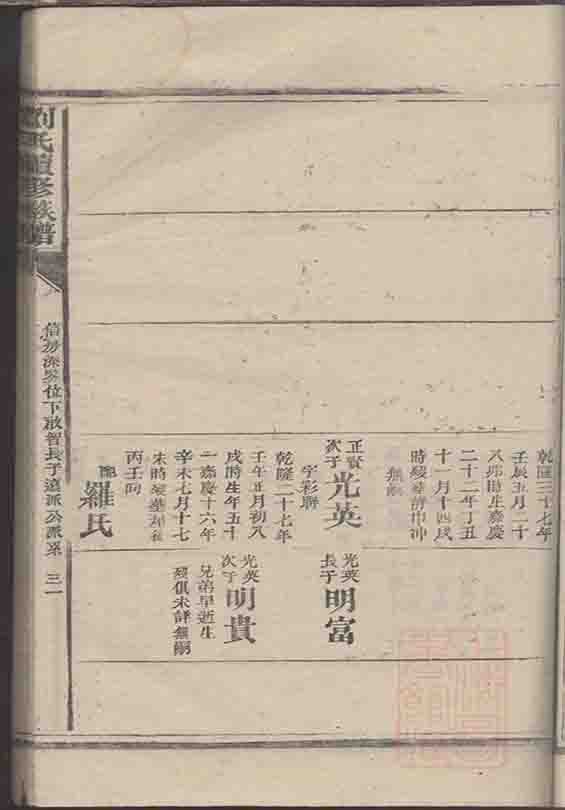 乾隆三十七年
壬辰五月二十
八卯時生嘉慶
二十二年丁丑
十一月十四戌
正賢
次子
光英
字彩聯
乾隆二十七年
壬午正月初八
戌時生年五十
一嘉慶十六年
辛未七月十七
丙壬向
配羅氏
光英
長子
明富
光英
次子
明貴
兄弟早逝生
殁俱未詳無嗣
劉氏續修族譜
位下啟智長子遠派公派系 三一